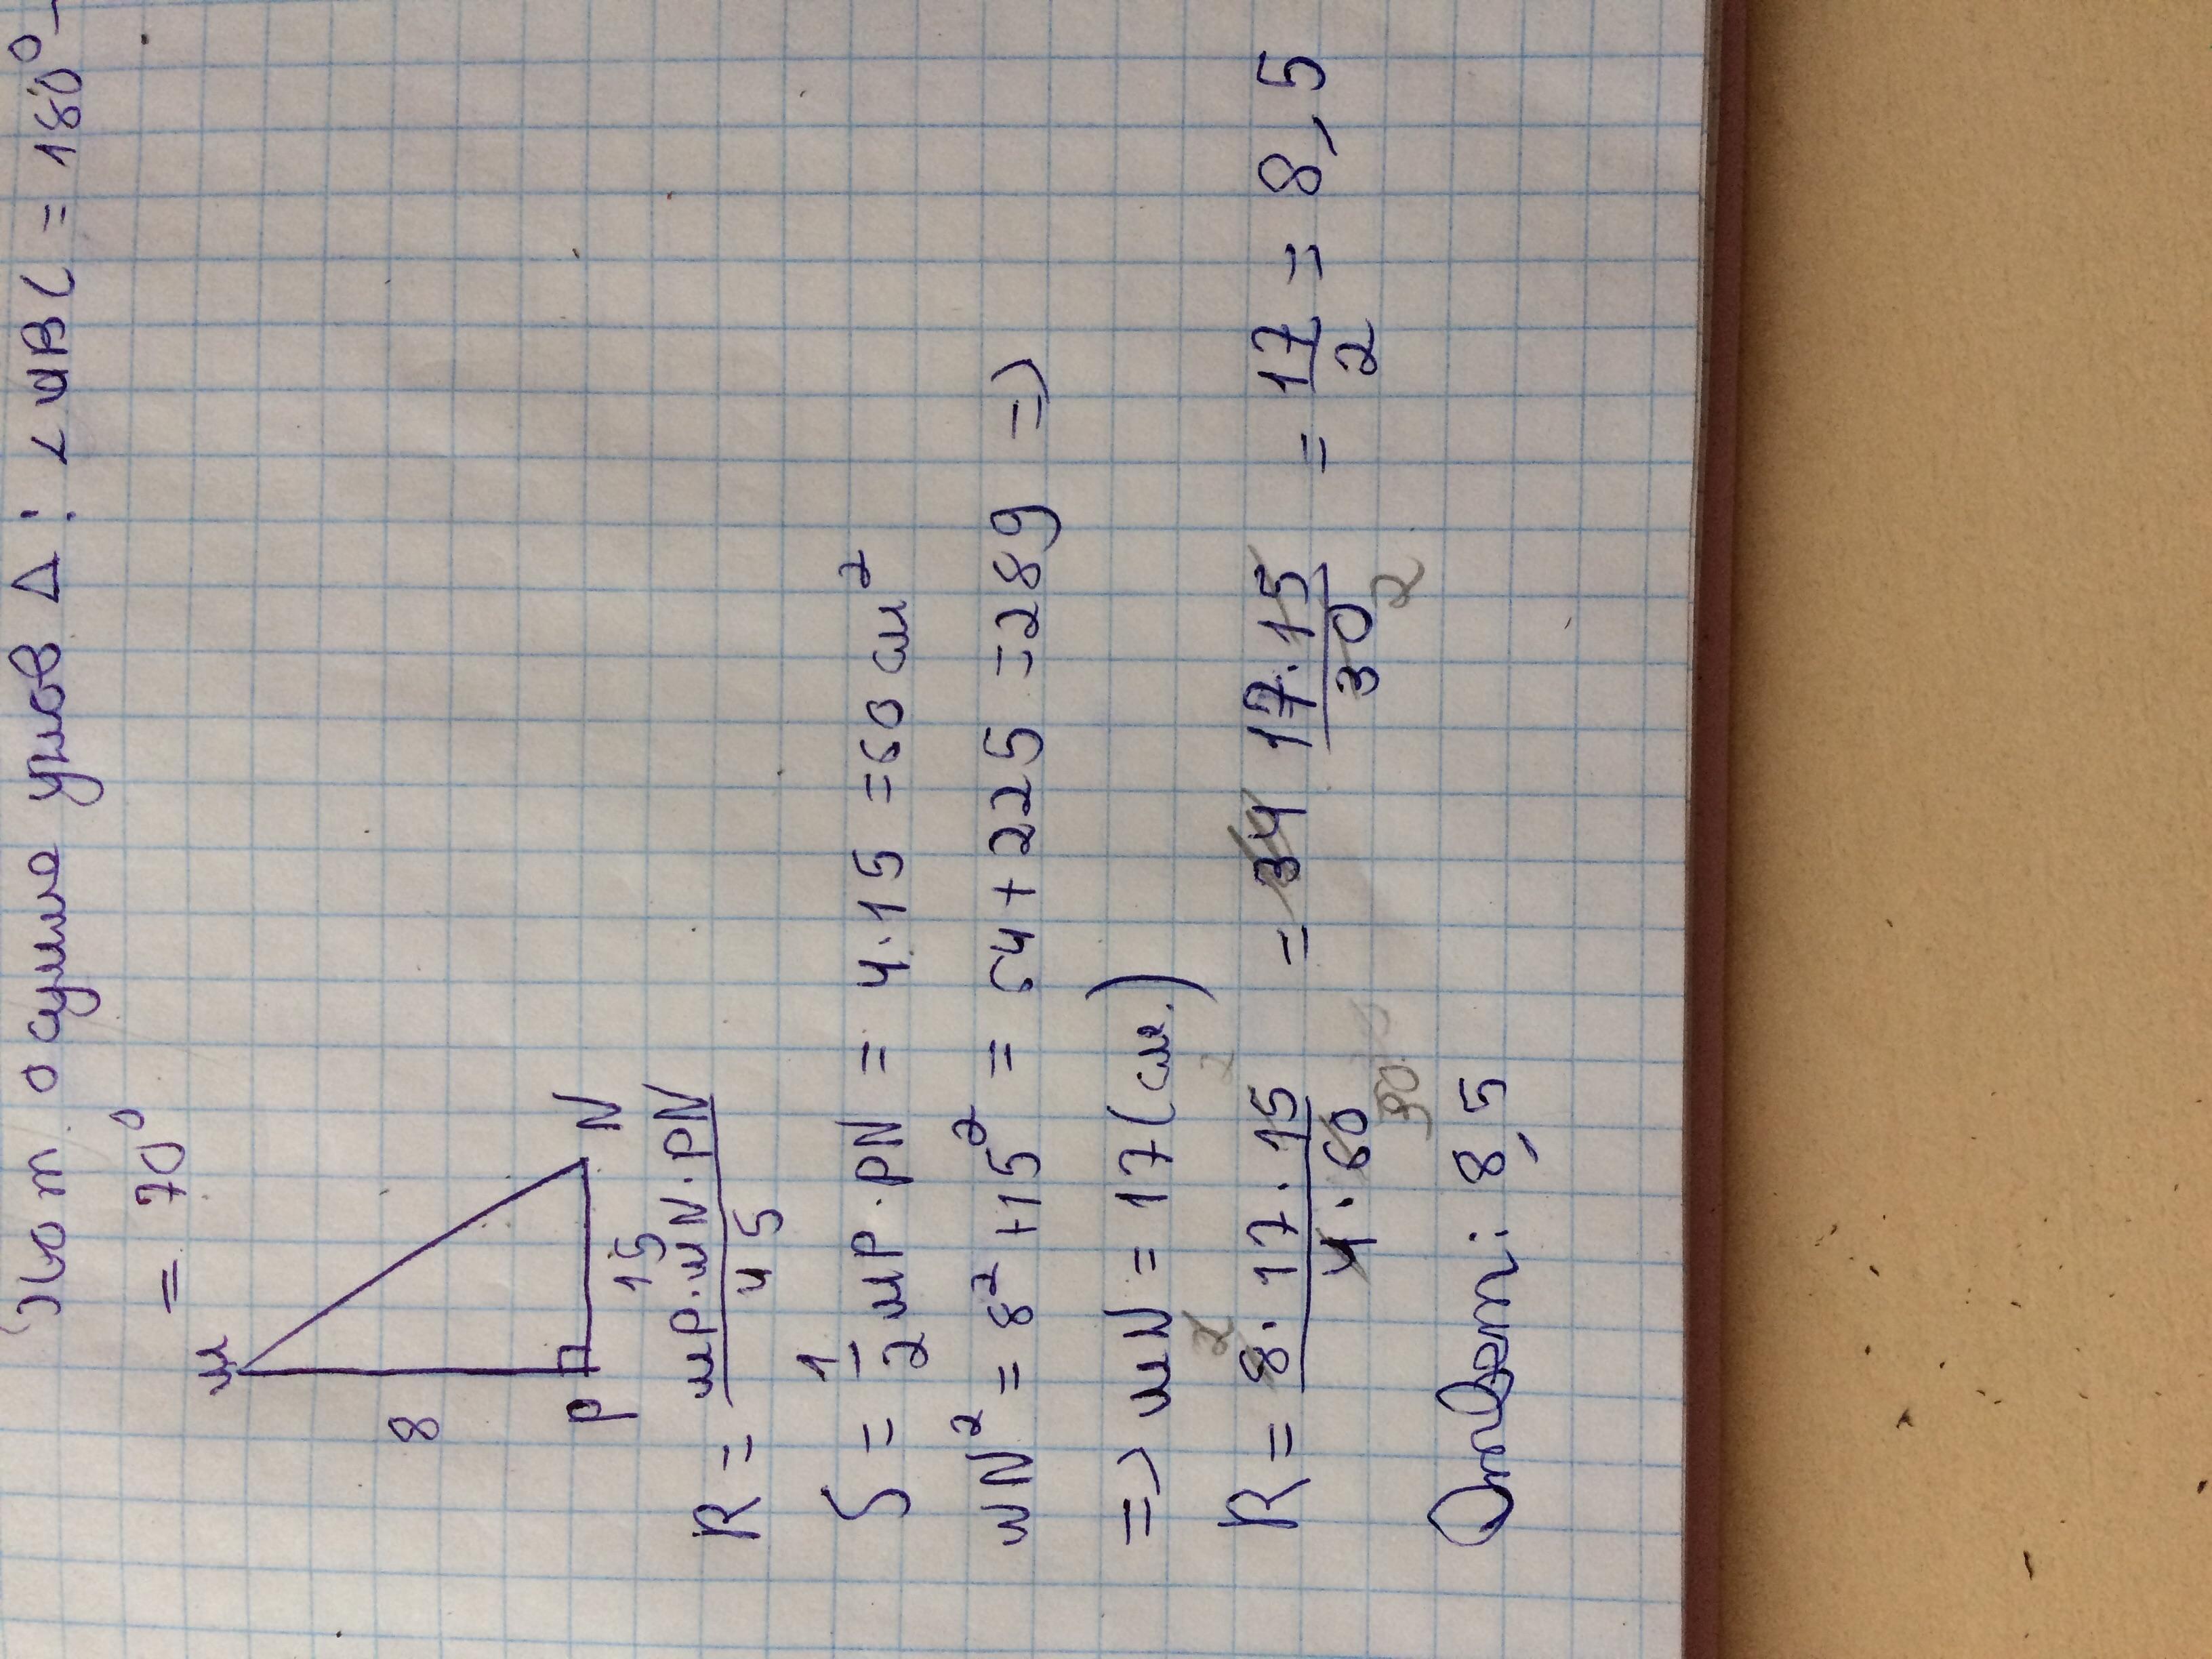 о сумме углов Δ: ∠ABC = 180° -
= 70°
M
8
P 15 N
R = MP·MN·PN / 4S
S = 1/2 MP·PN = 4·15 = 60 см²
MN² = 8² + 15² = 64 + 225 = 289 =>
=> MN = 17 (см.)
R = 8·17·15 / 4·60 = 34 17·15 / 30 = 17/2 = 8,5
2 2 30 2
Ответ: 8,5